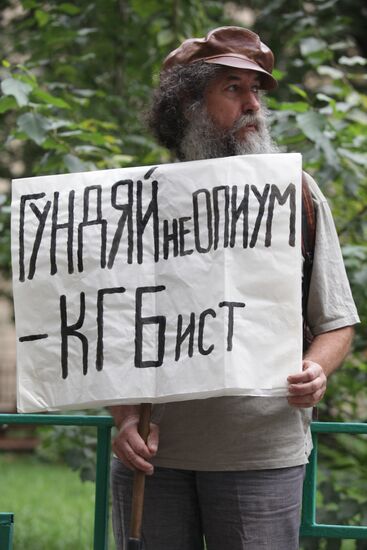 ГУНДЯЙ не ОПИУМ
- КГБ ист